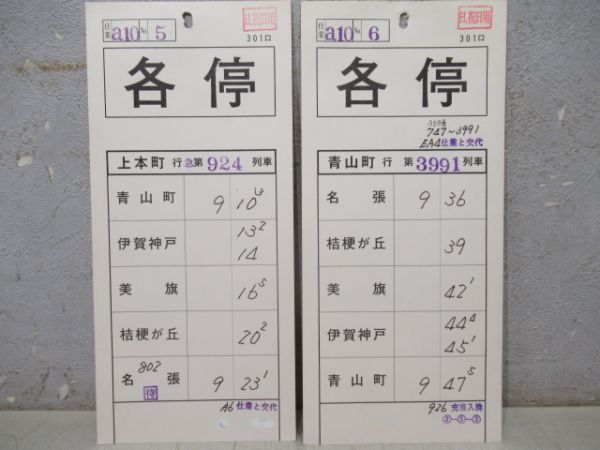 仕業 a10 No. 5
日,祝日用
301口
各停
上本町 行 急 第 924 列車
青山町 9 10
伊賀神戸 13 2
14
美旗 16 5
桔梗が丘 20 2
802
名張 9 23 1
待
A6 仕業と交代
仕業 a10 No. 6
日,祝日用
301口
各停
747~3991
EA4 仕業と交代
青山町 行 第 3991 列車
名張 9 36
桔梗が丘 39
美旗 42 1
伊賀神戸 44 4
45 1
青山町 9 47 5
926 充当入換